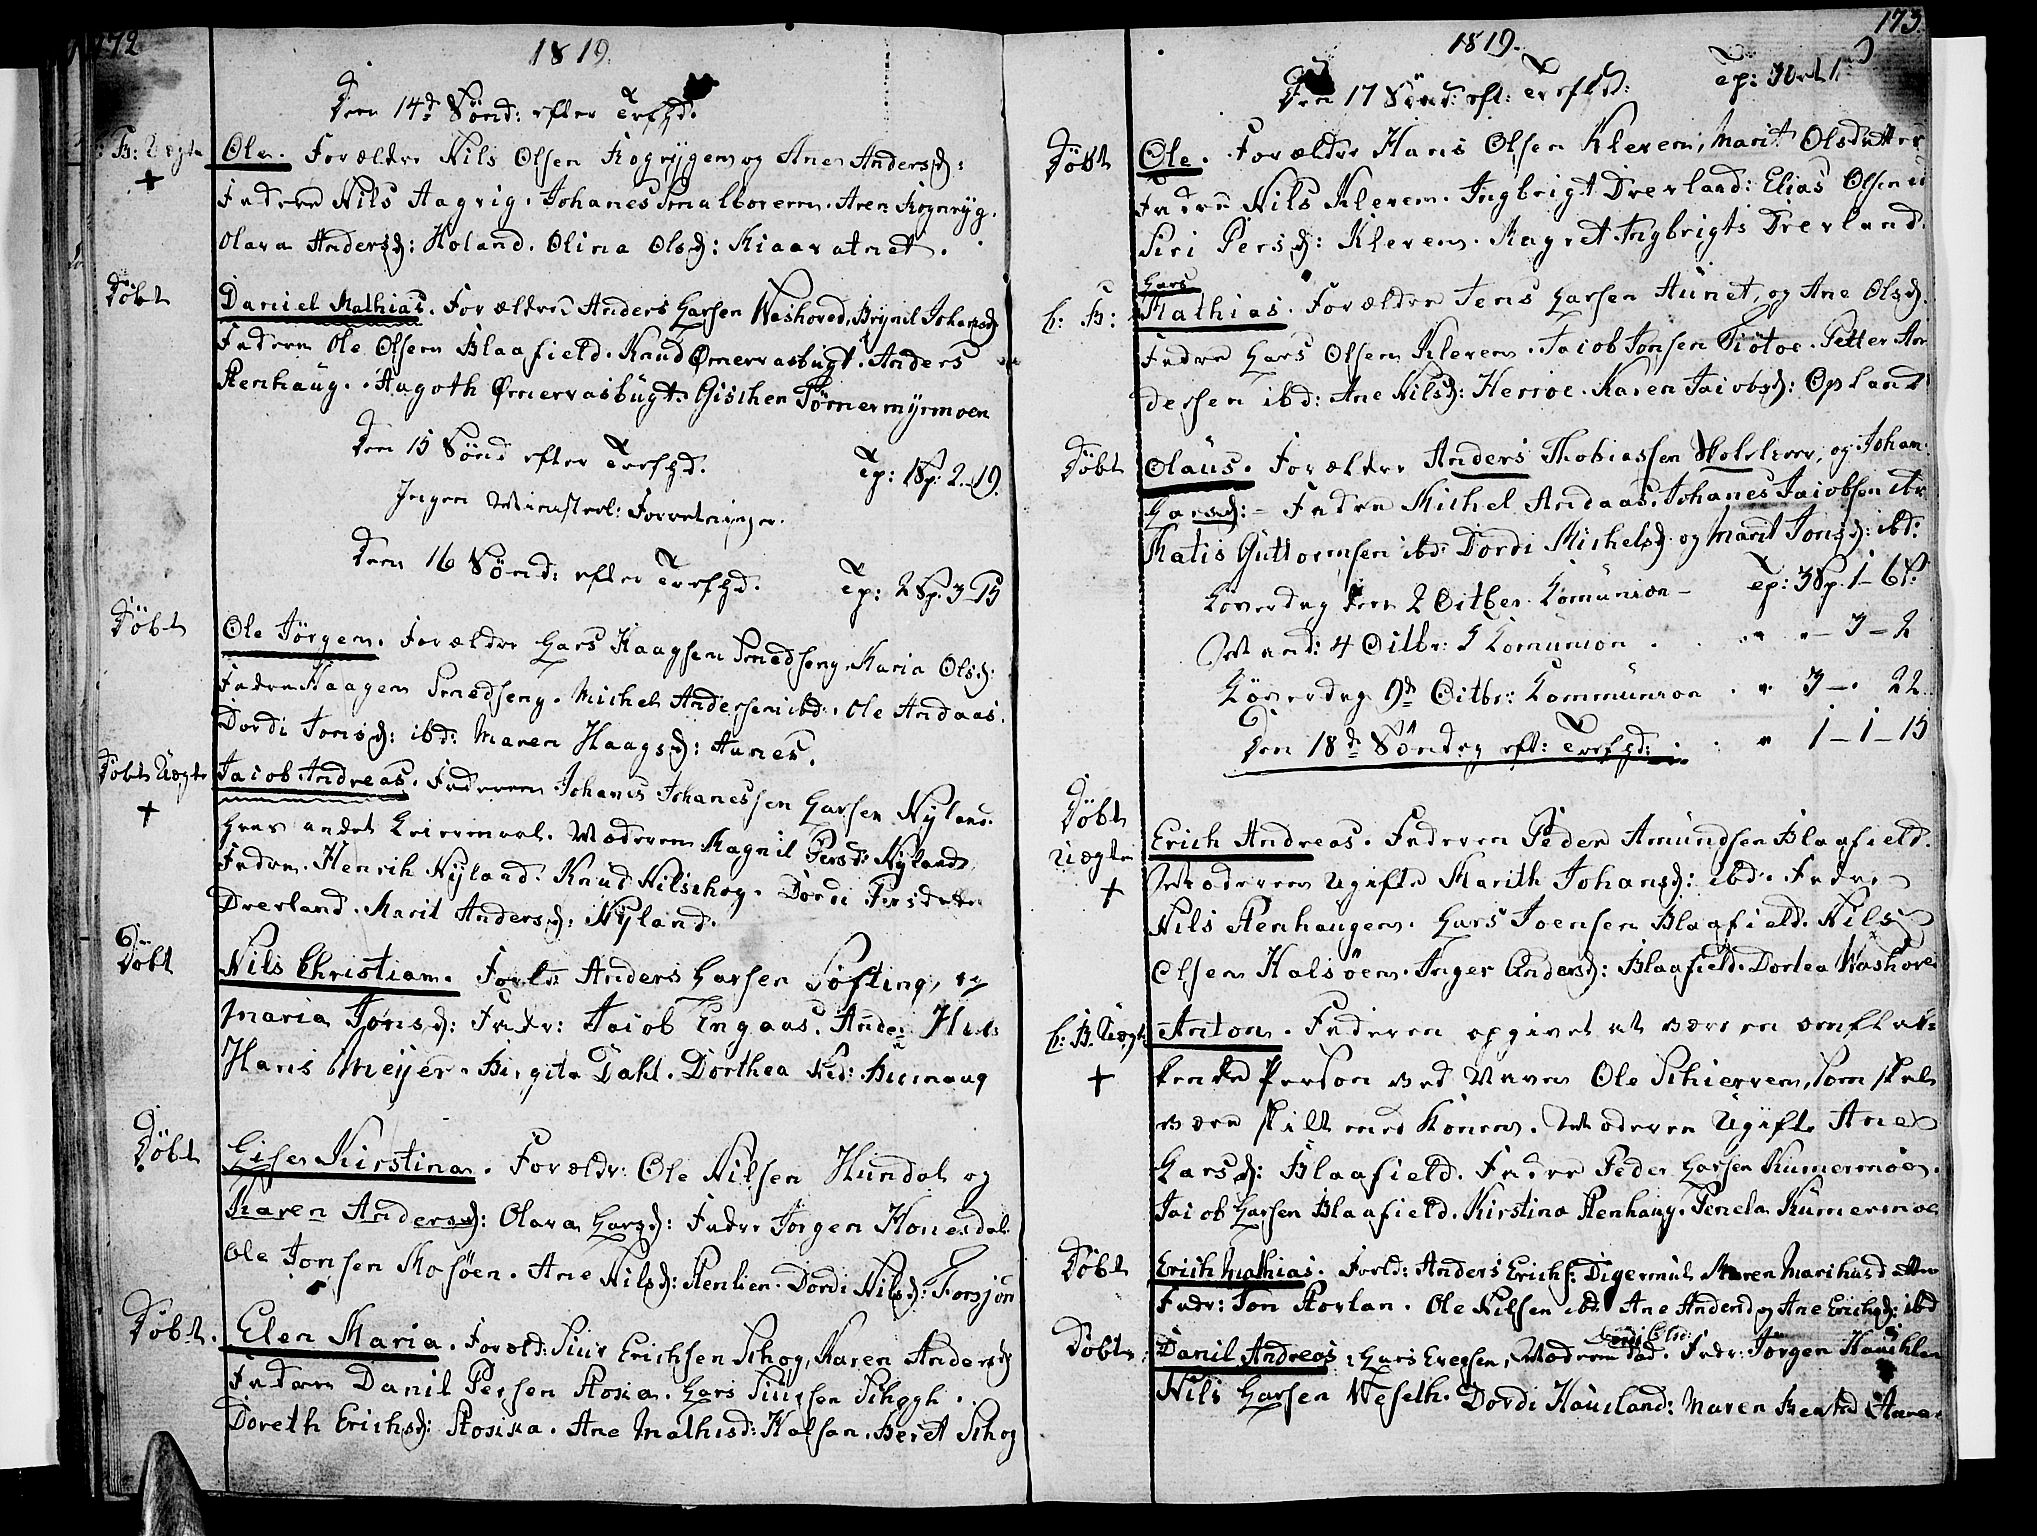 172
1819.
Den 14de Sönd: efter Trefhd.
B: Uegte
+
Ole. Forældre Nils Olsen Kogrygen og Ane Andersd:
Faderne Nils Aagvig. Johanes Smalboren. Aren
Olava Andersd: Holand. Olina Olsd: Kiaarvatnet.
Döbt
Daniel Mathias. Forældre Anders Larsen Washoved, Brynil Johansd
Fadern Ole Olsen Blaafield. Knud Ømervasbugt. Anders
Stenhaug. Aagoth Ømervasbugt. Gischen Tömermyrmoen
Den 15 Sönd efter Trefhd.
Tp: 1 Sp: 2. 19.
Ingen Ministerl: Forretninger.
Den 16 Sönd: efter Trefhd.
Tp: 2 Sp. 3-15
Döbt
Ole Jörgen. Forældre Lars Haagsen Smedseng, Maria Olsd:
Fadere Haagen Smedseng. Michel Andersen ibd. Ole Andaas.
Dordi Jonsd: ibd: Maren Haagsd: Aunes.
Döbt Uegte
+
Jacob Andreas. Faderen Johanes Johanessen Larsen Nyland.
hans andet Leiermaal. Moderen Magnil Persd: Nyland
Fadre. Henrik Nyland. Knud Nilsskog. Dordi Persdatter
Drevland. Marit Andersd: Nyland.
Döbt
Nils Christian. Forld: Anders Larsen Töfting, og
Maria Jonsd: Fadr: Jacob Engaas. Ande:
Hans Meijer. Birgite Dahl. Dorthea
Döbt
Lise Kirstina. Forældr: Ole Nilsen Hundal og
Karen Andersd: Olava Larsd: Fadre Jörgen Konendal
Ole Jonsen Mosöen. Ane Nilsd: Stenlien. Dordi Nilsd: Forsjön
Döbt.
Elen Maria. Foræld: Siur Erichsen Schog, Karen Andersd
Fadere Danil Persen Stosia. Lars Siursen Schogh.
Doreth Erichsd: Stosika. Ane Mathisd: Halsan. Beret Schog
173.
1819.
Den 17 Sönd: eft: Trefhd:
Tp:
Döbt
Ole. Forældre Hans Olsen Kleven, Marit Olsdatter
Fadre Nils Kleven. Ingbrigt Drevland: Elias Olsen
Siri Persd: Kleven. Magret Ingbrigts Drevland.
h: B:
Lars
Mathias. Forældre Jens Larsen Aunet, og Ane Olsd.
Fadre Lars Olsen Kleven. Jacob Jonsen Tiötoe. Petter An
dersen ibd: Ane Nilsd: Herröe. Karen Jacobsd: Opland
Döbt
Olaus. Forældre Anders Thobiassen og Johan.
Larsd: - Fadre Michel Andaas. Johanes Jacobsen
Matis Guttormsen ibd. Dordi Michelsd. og Marit Jonsd: ibd:
Löverdag den 2 Octber. Komunion - Tp: 3 Sp. 1-6 s:
Mand: 4 Octbr: Komunion . . " " - 3-2
Löverdag 9de Octbr: Kommunion . " 3 -. 22
Den 18de Söndag eft: Trefhd: . . " 1-1-15
Döbt
uegte
+
Erich Andreas. Faderen Peder Amundsen Blaafield.
Moderen Ugifte Marith Johansd: ibd. Fadre
Nils Stenhaugen. Lars Joensen Blaafield. Nils
Olsen Halsöen. Inger Andersd: Blaafield. Dortea Washoved
h: B. Uegte
+
Anton. Faderen opgivet at være en omflak-
kende Person ved Navn Ole Schierven, som skal
være skilt med Konen. Moderen Ugifte Ane
Larsd: Blaafield. Fadre Peder Larsen Kumermoen.
Jacob Larsen Blaafield. Kirstina Stenhaug. Penela Kumermoe
Döbt
Erich Mathias. Forld: Anders Erichs: Digermul Maren Marthisdatter
Fadr: Jon Storlan. Ole Nilsen ibd Ane Andersd og Ane Erichsd: ibd
Döbt
Danil Andreas, Lars Moderen Fadr: Jörgen
Nils Larsen Weseth. Dordi Hausland: Maren